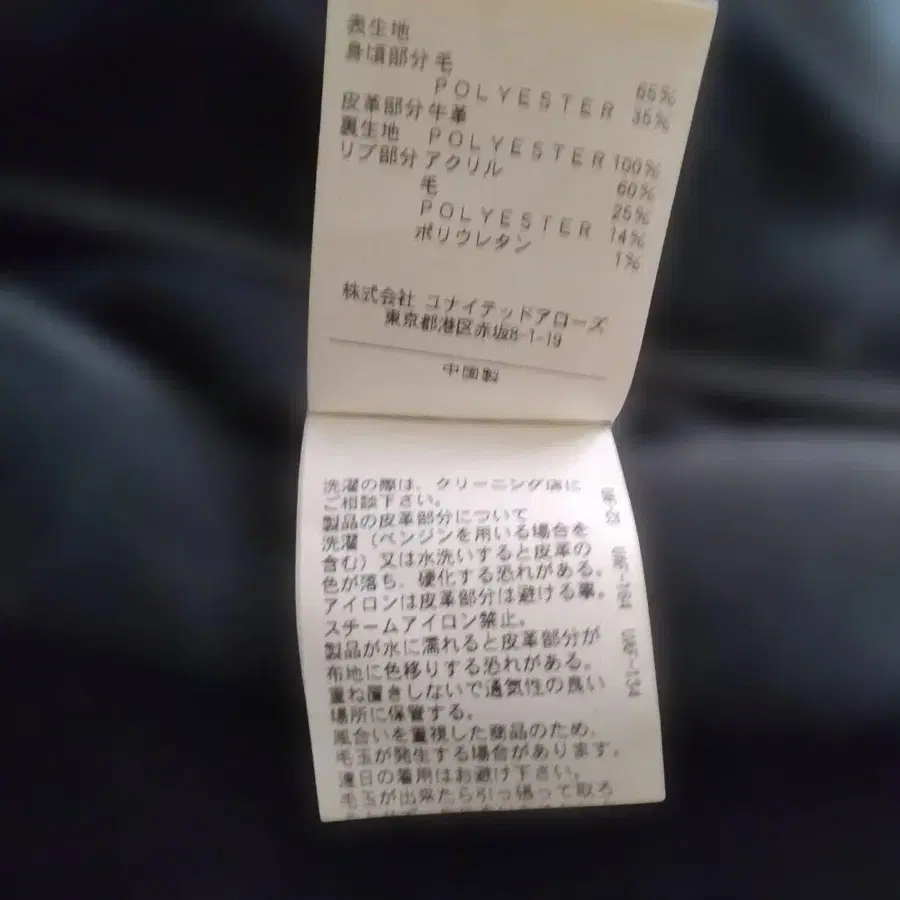 表生地
身頃部分 毛 65%
POLYESTER 35%
皮革部分 牛革
裏生地 POLYESTER 100%
リブ部分 アクリル 60%
毛 25%
POLYESTER 14%
ポリウレタン 1%
株式会社 ユナイテッドアローズ
東京都港区赤坂8-1-19
中国製
洗濯の際は、クリーニング店に
ご相談下さい。
製品の皮革部分について
洗濯(ベンジンを用いる場合を
含む)又は水洗いすると皮革の
色が落ち、硬化する恐れがある。
アイロンは皮革部分は避ける事。
スチームアイロン禁止。
製品が水に濡れると皮革部分が
布地に色移りする恐れがある。
重ね置きしないで通気性の良い
場所に保管する。
風合いを重視した商品のため、
毛玉が発生する場合があります。
連日の着用はお避け下さい。
毛玉が出来たら引っ張って取ろ